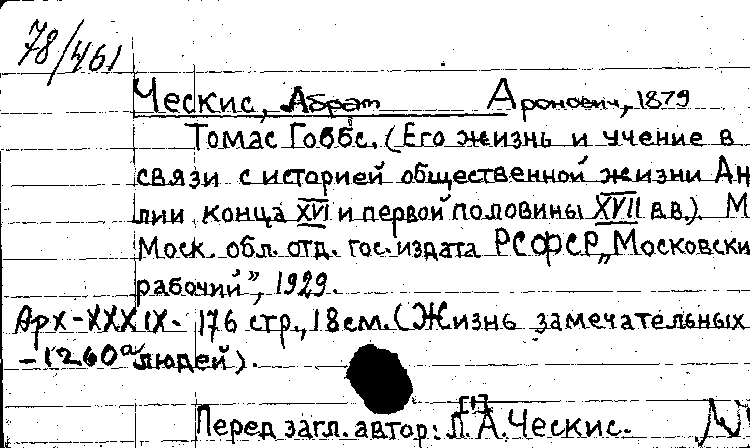 78/461
Ческис, Абрам Аронович, 1879
Томас Гоббс. (Его жизнь и учение в
связи с историей общественной жизни Ан
лии конца XVI и первой половины XVII в.в.). М
Моск. обл. отд. гос. издата РСФСР, „Московски
рабочий", 1929.
Арх-XXXIX- 176 стр., 18 см. (Жизнь замечательных
-1260а людей).
[!]
Перед загл. автор: Л. А. Ческис.